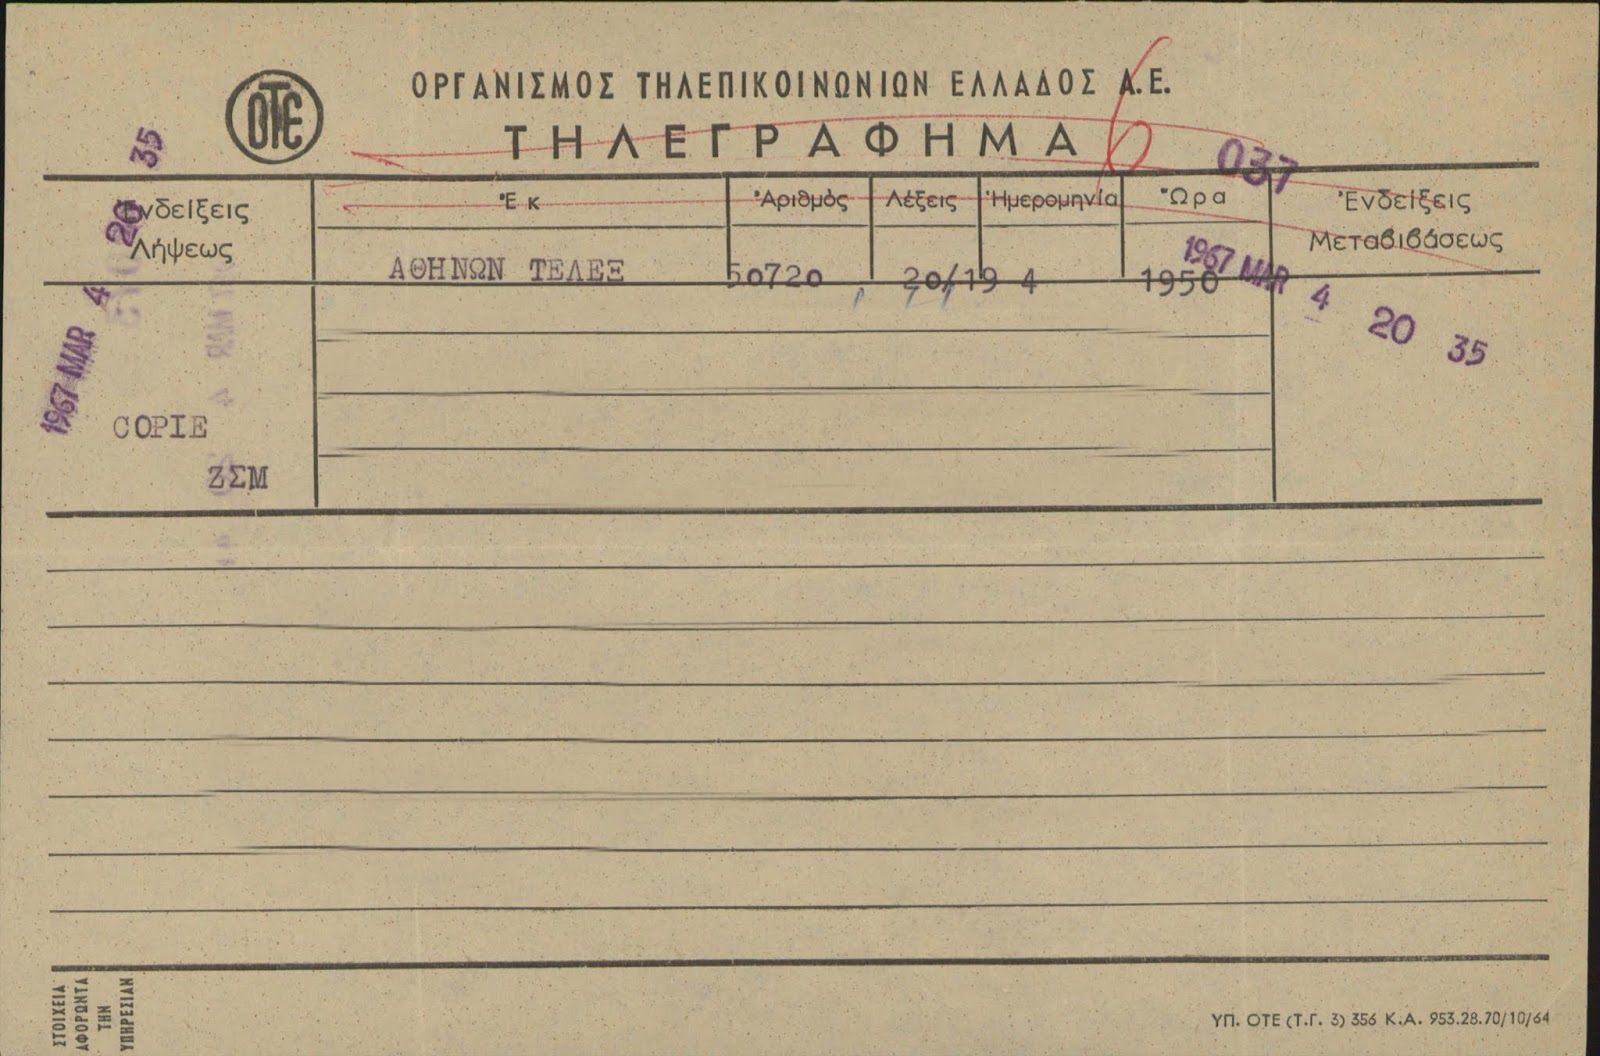 ΟΤΕ
ΟΡΓΑΝΙΣΜΟΣ ΤΗΛΕΠΙΚΟΙΝΩΝΙΩΝ ΕΛΛΑΔΟΣ Α.Ε.
ΤΗΛΕΓΡΑΦΗΜΑ
6
037
Ἐνδείξεις
Λήψεως
Ἐκ
Ἀριθμὸς
Λέξεις
Ἡμερομηνία
Ὥρα
Ἐνδείξεις
Μεταβιβάσεως
ΑΘΗΝΩΝ ΤΕΛΕΞ 50720 20/19 4 1950
1967 MAR 4 20 35
1967 MAR 4 20 35
COPIE
ΖΣΜ
ΣΤΟΙΧΕΙΑ
ΑΦΟΡΩΝΤΑ
ΤΗΝ
ΥΠΗΡΕΣΙΑΝ
ΥΠ. ΟΤΕ (Τ.Γ. 3) 356 Κ.Α. 953.28.70/10/64